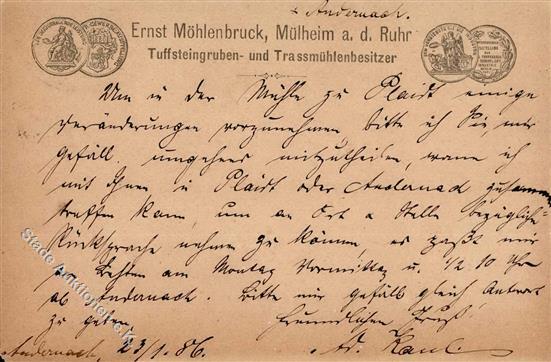 & Andernach.
Ernst Möhlenbruck, Mülheim a. d. Ruhr
Tuffsteingruben- und Trassmühlenbesitzer
Um in der Mühle zu Plaidt einige
Veränderungen vorzunehmen bitte ich Sie, mir
gefäll. umgehens mitzutheilen, wann ich
mit Ihnen in Plaidt oder Andernach zusammen
treffen kann um an Ort & Stelle bezügliche
Rücksprache nehmen zu können, es paßt mir
am besten am Montag Vormittag u. 1/2 10 Uhr
ab Andernach. Bitte mir gefäll gleich Antwort
zu geben. Freundlichen Gruß
Andernach, 23/1. 86. Ad.